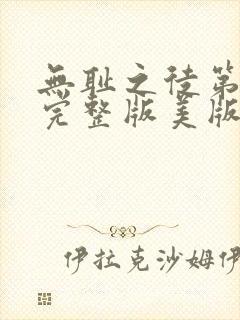 無耻之徒第
完整版美版
伊拉克沙姆伊